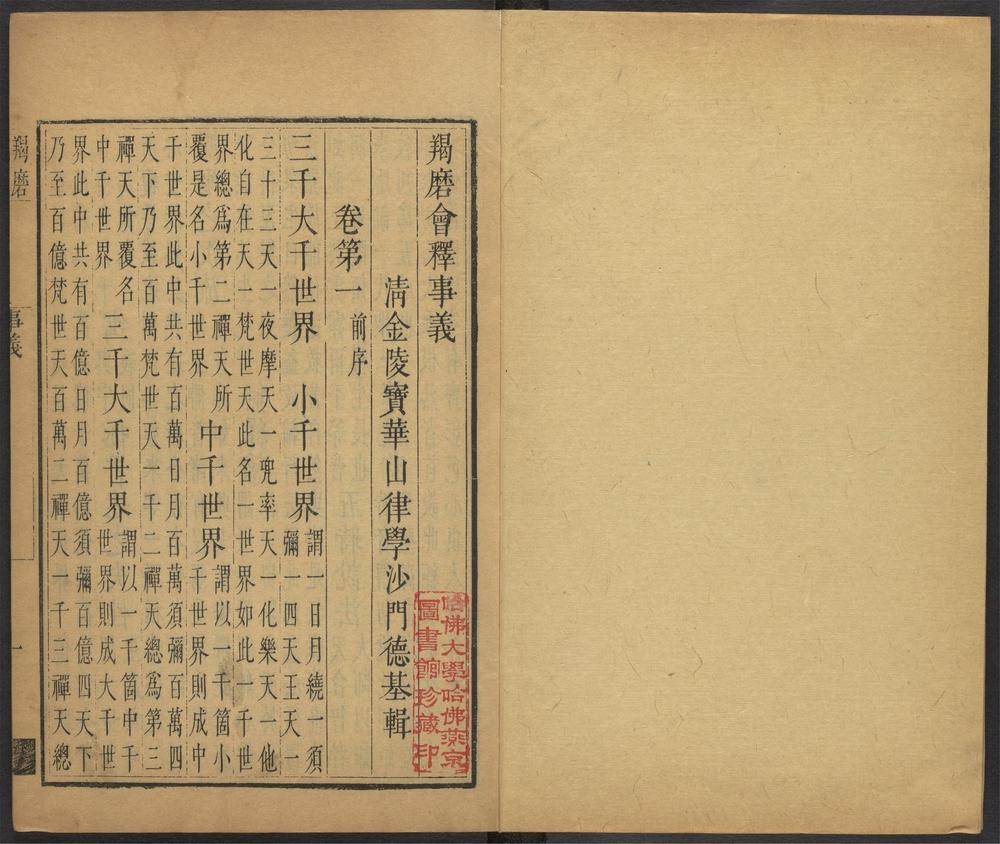 羯磨會釋事義
清金陵寶華山律學沙門德基輯
卷第一 前序
三千大千世界 小千世界
謂一日月繞一須
彌一四天王天一
三十三天一夜摩天一兜率天一化樂天一他
化自在天一梵世天此名一世界如此一千世
界總爲第二禪天所
覆是名小千世界
中千世界
謂以一千箇小
千世界則成中
千世界此中共有百萬日月百萬須彌百萬四
天下乃至百萬梵世天一千二禪天總爲第三
禪天所覆名
中千世界
三千大千世界
謂以一千箇中千
世界則成大千世
界此中共有百億日月百億須彌百億四天下
乃至百億梵世天百萬二禪天一千三禪天總
羯磨
事義
一
哈佛大學哈佛燕京
圖書館珍藏印